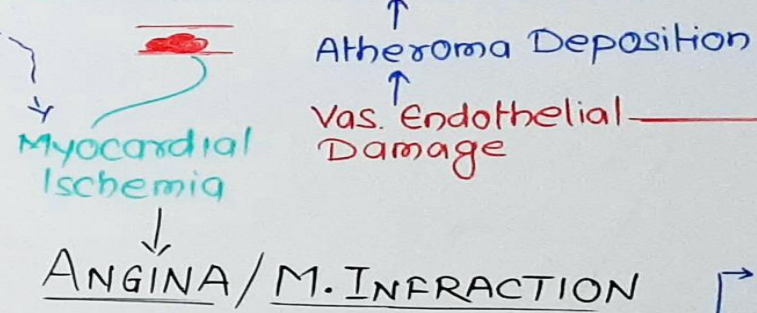 Atheroma Deposition
Vas. Endothelial
Damage
Myocardial
Ischemia
ANGINA / M. INFRACTION